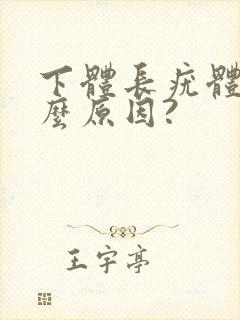 下體長疣體
麼原因?
王宇亭